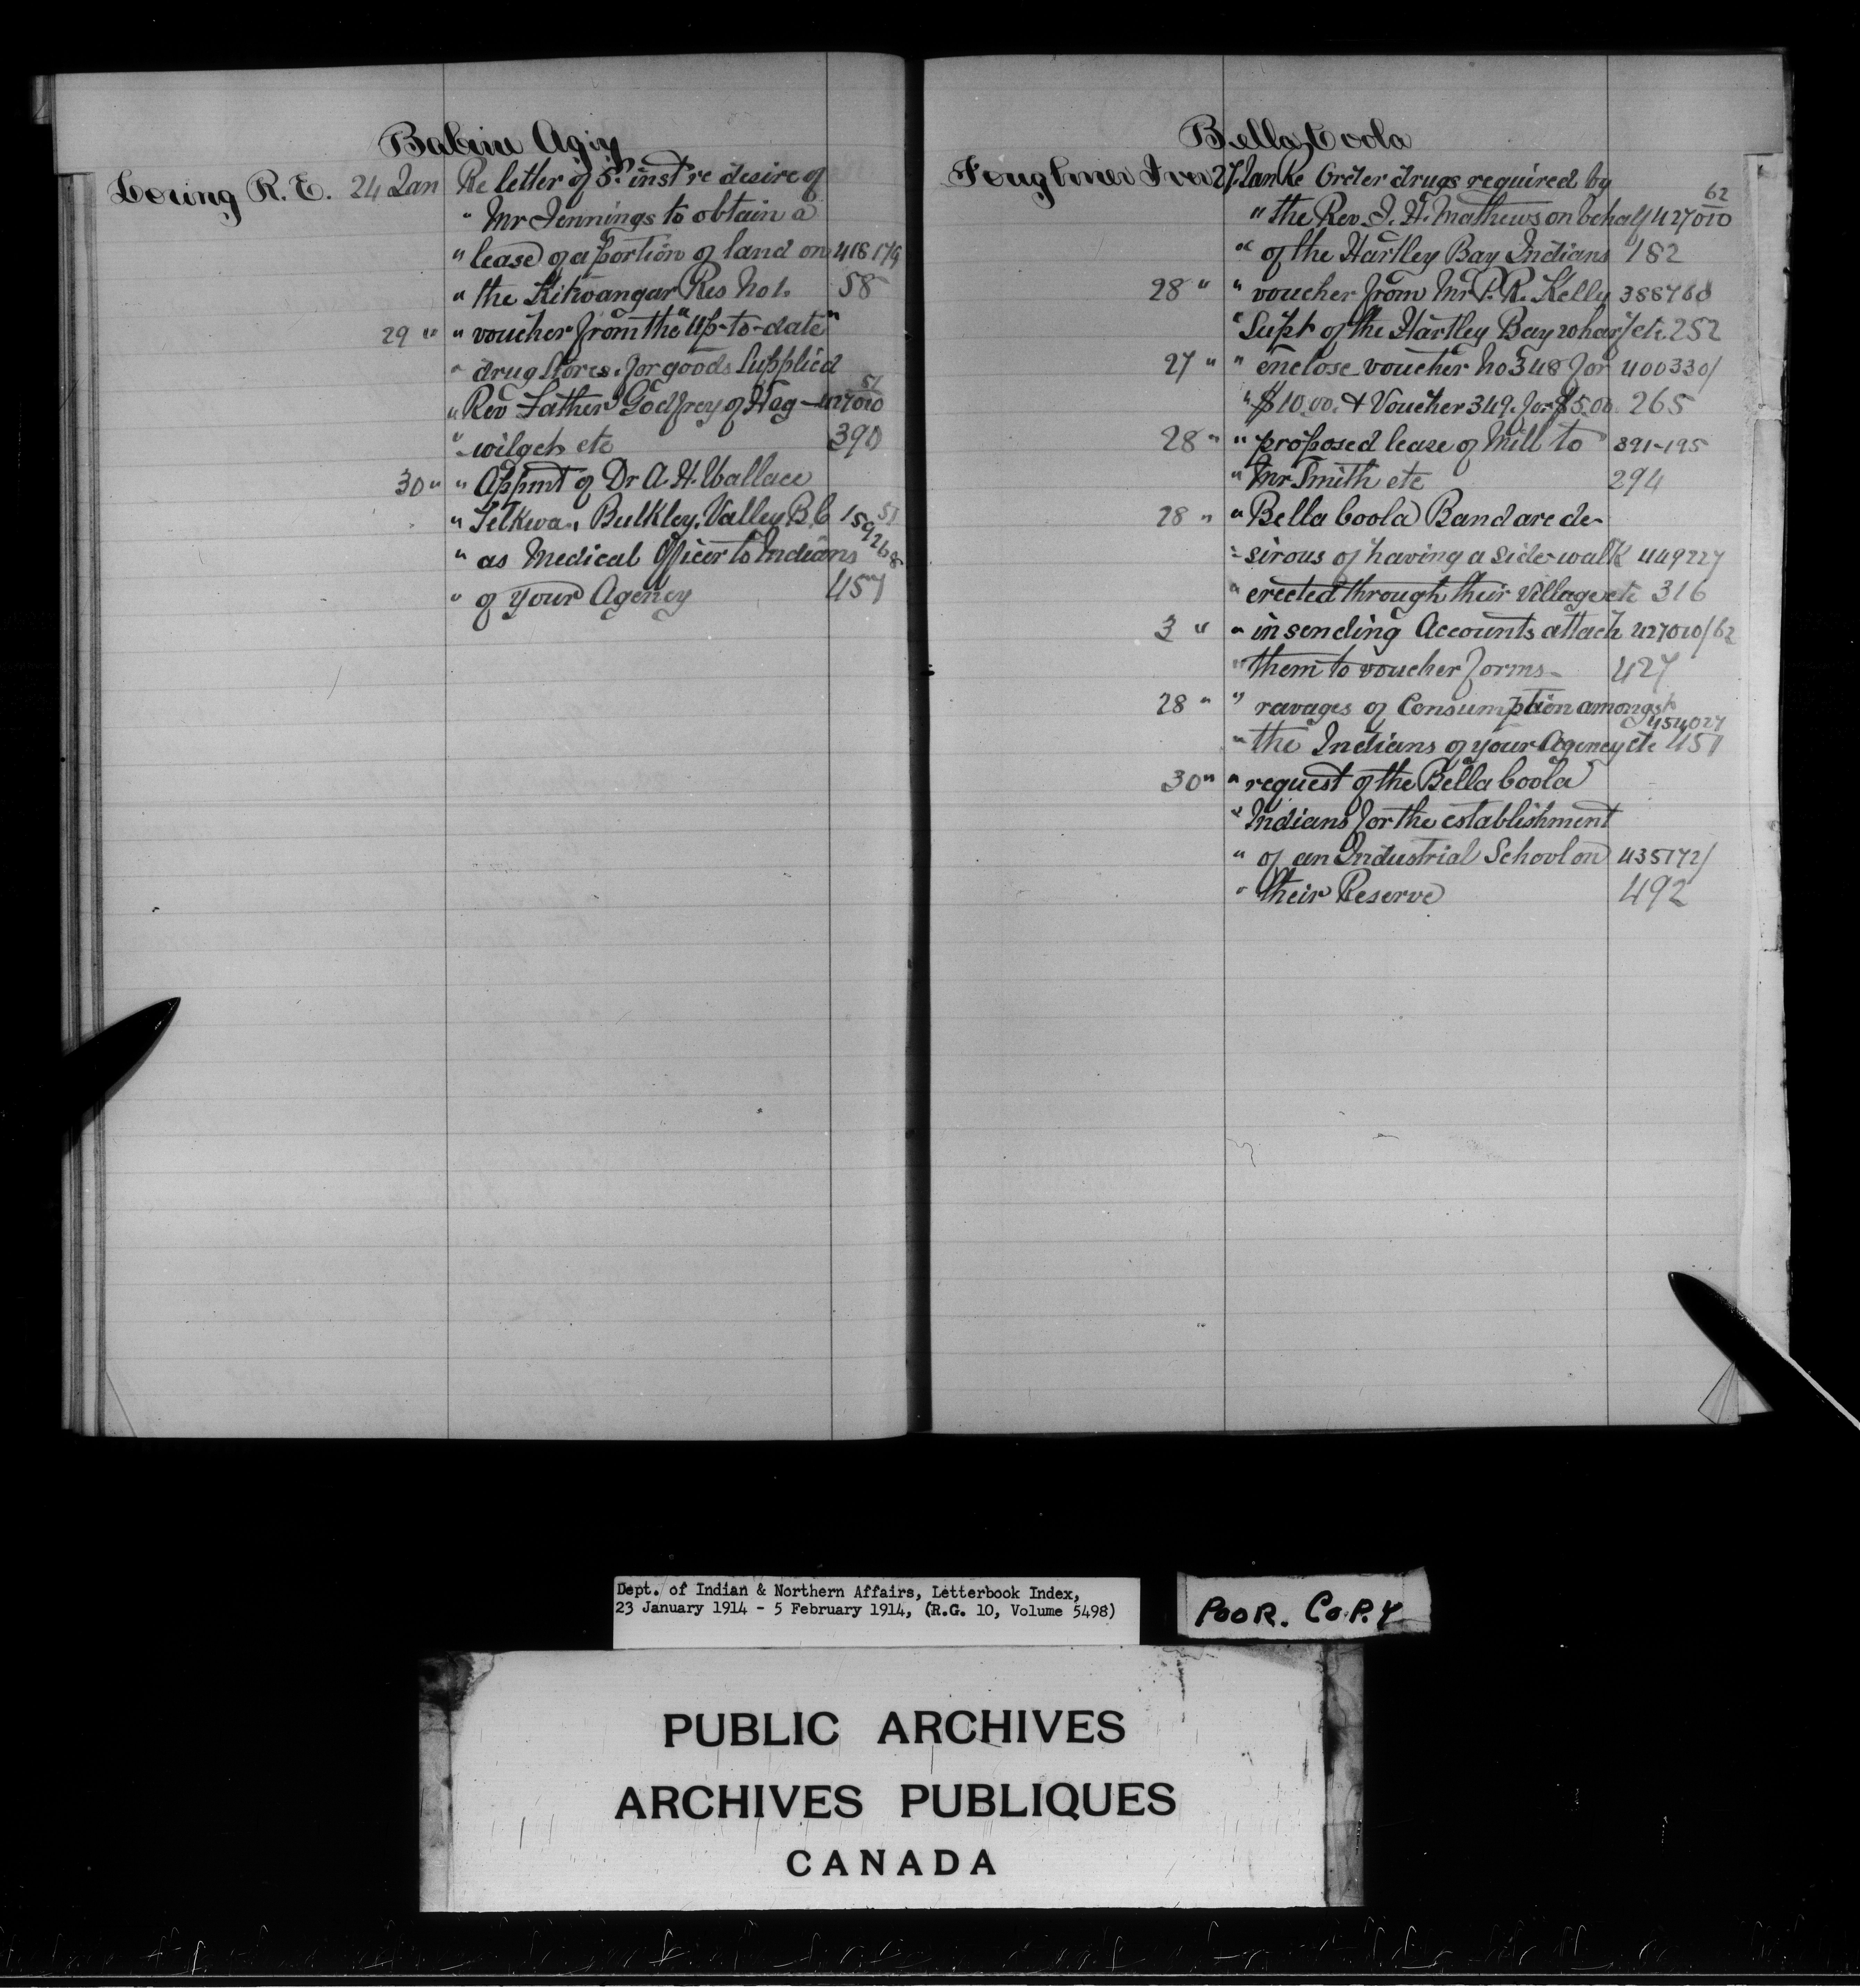 Babine Agcy
Loring R. E. 24 Jan Re letter of 5th inst re desire of
" Mr Jennings to obtain a
" lease of a portion of land on 418179
" the Kitwangar Res No 1. 58
29 " " voucher from the "Up-to-date"
" drug stores. for goods supplied
" Rev Father Godfrey of Hag- 427010 51
" wilget etc 390
30 " " Appmt of Dr A. H. Wallace
" Telkwa, Bulkley Valley B.C 159268 51
" as Medical Officer to Indians
" of your Agency 457
Bella Coola
Fougner Iver 27 Jan Re Order drugs required by
" the Rev. I. H. Mathews on behalf 427010 62
" of the Hartley Bay Indians 182
28 " " voucher from Mr P. R. Kelly 388768
" Supt of the Hartley Bay wharf etc. 252
27 " " enclose voucher No 348 for 400330/
" $10.00. & Voucher 349. for $5.00 265
28 " " proposed lease of Mill to 391-195
" Mr Smith etc 294
28 " " Bella Coola Band are de-
" sirous of having a side-walk 449227
" erected through their village etc 316
3 " " in sending Accounts attach 427010/62
" them to voucher forms 427
28 " " ravages of Consumption amongst
" the Indians of your Agency etc 454027 451
30 " " request of the Bella Coola
" Indians for the establishment
" of an Industrial School on 435172/
" their Reserve 492
Dept. of Indian & Northern Affairs, Letterbook Index,
23 January 1914 - 5 February 1914, (R.G. 10, Volume 5498)
POOR. COPY
PUBLIC ARCHIVES
ARCHIVES PUBLIQUES
CANADA